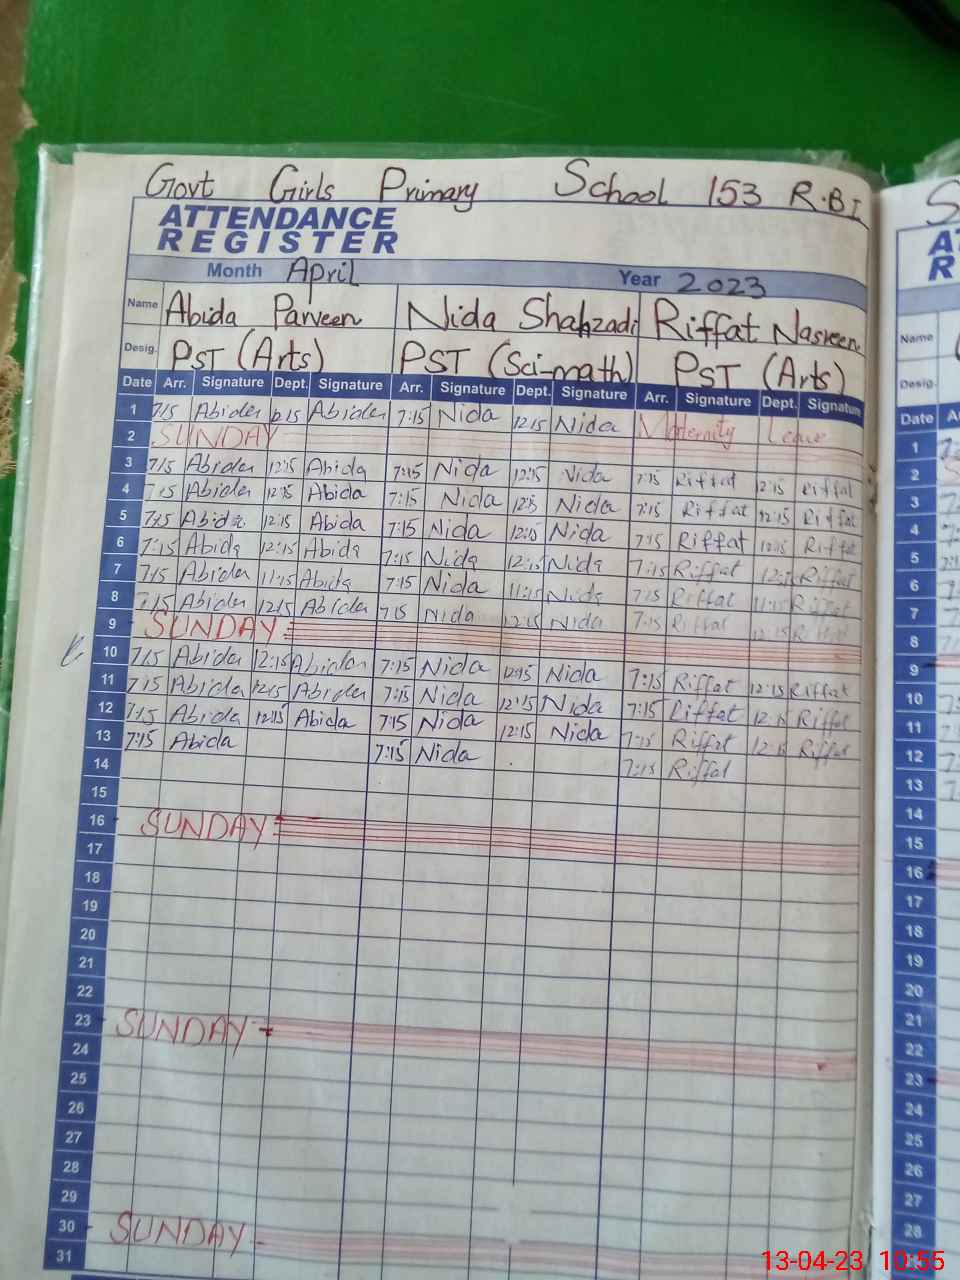 Govt Girls Primary School 153 R.B I
ATTENDANCE
REGISTER
Month April Year 2023
Name Abida Parveen Nida Shahzadi Riffat Nasreen
Desig. PST (Arts) PST (Sci-math) PST (Arts)
Date Arr. Signature Dept. Signature Arr. Signature Dept. Signature Arr. Signature Dept. Signature
1 7:15 Abida 12:15 Abida 7:15 Nida 12:15 Nida Maternity Leave
2 SUNDAY
3 7:15 Abida 12:15 Abida 7:15 Nida 12:15 Nida 7:15 Riffat 12:15 Riffat
4 7:15 Abida 12:15 Abida 7:15 Nida 12:15 Nida 7:15 Riffat 12:15 Riffat
5 7:15 Abida 12:15 Abida 7:15 Nida 12:15 Nida 7:15 Riffat 12:15 Riffat
6 7:15 Abida 12:15 Abida 7:15 Nida 12:15 Nida 7:15 Riffat 12:15 Riffat
7 7:15 Abida 11:15 Abida 7:15 Nida 11:15 Nida 7:15 Riffat 11:15 Riffat
8 7:15 Abida 12:15 Abida 7:15 Nida 12:15 Nida 7:15 Riffat 12:15 Riffat
9 SUNDAY
10 7:15 Abida 12:15 Abida 7:15 Nida 12:15 Nida 7:15 Riffat 12:15 Riffat
11 7:15 Abida 12:15 Abida 7:15 Nida 12:15 Nida 7:15 Riffat 12:15 Riffat
12 7:15 Abida 12:15 Abida 7:15 Nida 12:15 Nida 7:15 Riffat 12:15 Riffat
13 7:15 Abida 7:15 Nida 7:15 Riffat
14
15
16 SUNDAY
17
18
19
20
21
22
23 SUNDAY
24
25
26
27
28
29
30 SUNDAY
31
Name
Desig.
Date
1
2
3
4
5
6
7
8
9
10
11
12
13
14
15
16
17
18
19
20
21
22
23
24
25
26
27
28
13-04-23 10:55